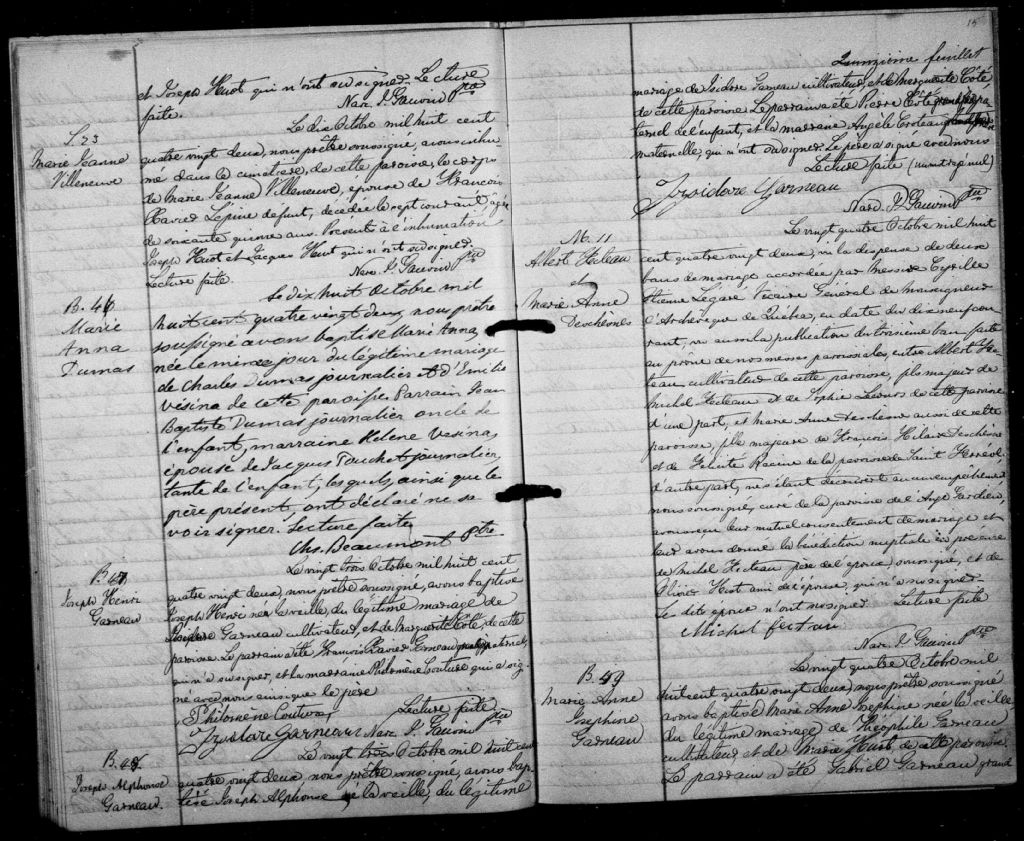 et Joseph Huot qui n'ont su signer. Lecture
faite. Narc. P. Gauvin Ptre
S. 23
Marie Jeanne
Villeneuve
Le dix Octobre mil huit cent
quatre vingt deux, nous prêtre soussigné, avons inhu
mé dans le cimetière, de cette paroisse, le corps
de Marie Jeanne Villeneuve, épouse de François
Xavier Lepine défunt, décédée le sept courant âgée
de soixante quinze ans. Présents à l'inhumation
Joseph Huot et Jacques Huot qui n'ont su signer.
Lecture faite. Narc. P. Gauvin Ptre
B. 46
Marie
Anna
Dumas
Le dix huit Octobre mil
huit cent quatre vingt deux, nous prêtre
soussigné avons baptisé Marie Anna,
née le même jour du légitime mariage
de Charles Dumas journalier et d'Emilie
Vésina de cette paroisse. Parrain Jean
Baptiste Dumas journalier oncle de
l'enfant, marraine Helene Vesina,
épouse de Jacques Touchet journalier,
tante de l'enfant, lesquels, ainsi que le
père présent, ont déclaré ne sa
voir signer. Lecture faite
Chs. Beaumont Ptre
B. 47
Joseph Henri
Garneau
Le vingt trois Octobre mil huit cent
quatre vingt deux, nous prêtre soussigné, avons baptisé
Joseph Henri né la veille, du légitime mariage de
Garneau cultivateur, et de Marguerite Coté, de cette
paroisse. Le parrain a été François Xavier Garneau paternel,
qui n'a su signer, et la marraine Philomène Couture qui a sig
né avec nous ainsi que le père
Philomène Couture Lecture faite
Izsidore Garneau Narc. P. Gauvin Ptre
B. 48
Joseph Alphonse
Garneau.
Le vingt trois Octobre mil huit cent
quatre vingt deux, nous prêtre soussigné, avons bap
tisé Joseph Alphonse né la veille, du légitime
15
Quinzième feuillet
mariage de Isidore Garneau cultivateur, et de Marguerite Coté
de cette paroisse. Le parrain a été Pierre Coté grand père pa
ternel de l'enfant, et la marraine Angèle Croteau
maternelle, qui n'ont su signer. Le père a signé avec nous
Lecture faite
Izsidore Garneau
Narc. P. Gauvin Ptre
M. 11
Albert Fecteau
et
Marie Anne
Deschènes
Le vingt quatre Octobre mil huit
cent quatre vingt deux, vu la dispense de deux
bans de mariage accordée par Messire Cyrille
Etienne Légaré Vicaire Général de Monseigneur
l'Archevêque de Québec, en date du dix neuf cou
rant, vu aussi la publication du troisième ban faite
au prône de nos messes paroissiales, entre Albert Fec
teau, cultivateur de cette paroisse, fils majeur de
Michel Fecteau et de Sophie Lecours de cette paroisse
d'une part, et Marie Anne Deschènes aussi de cette
paroisse, fille majeure de François Hilaire Deschènes
et de Felicité Racine de la paroisse de Saint Ferréol
d'autre part, ne s'étant découvert aucun empêchement
nous soussigné, curé de la paroisse de l'Ange Gardien,
avons reçu leur mutuel consentement de mariage et
leur avons donné la bénédiction nuptiale en présence
de Michel Fecteau père de l'époux, soussigné, et de
Olivier Huot ami de l'épouse, qui n'a su signer.
Le dits époux n'ont su signer. Lecture faite
Michel fectau
Narc. P. Gauvin Ptre
B. 49
Marie Anne
Josephine
Garneau
Le vingt quatre Octobre mil
huit cent quatre vingt deux, nous prêtre soussigné
avons baptisé Marie Anne Josephine née la veille
du légitime mariage de Théophile Garneau
cultivateur, et de Marie Huot de cette paroisse
Le parrain a été Gabriel Garneau grand